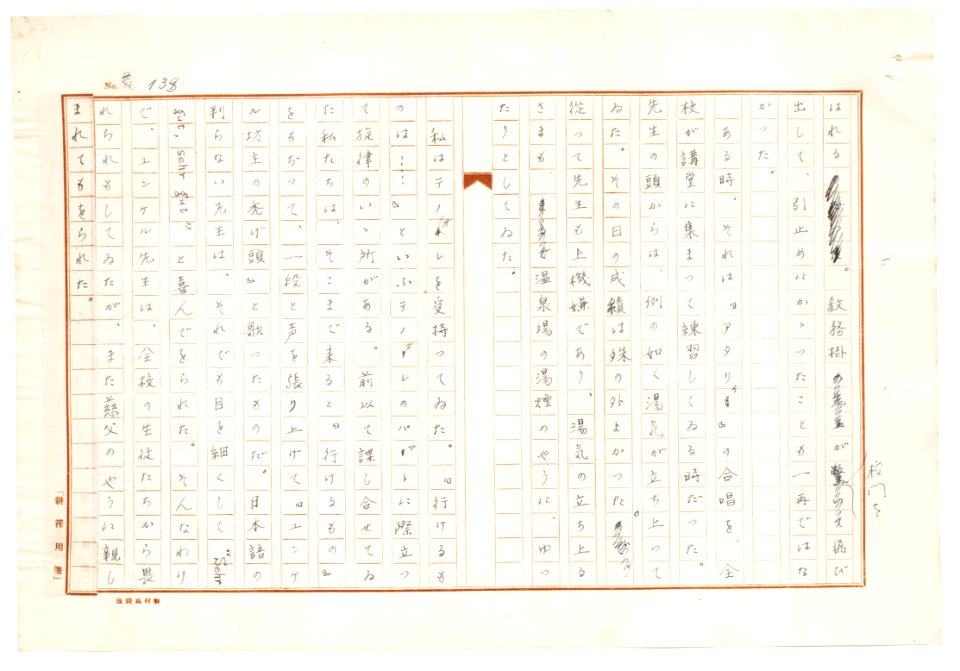 No. 138
はれる。教務掛が飛び
校門を
出して、引止めにかゝつたことも一再ではな
かつた。
ある時、それは『アタリイ』の合唱を、全
校が講堂に集まつて練習してゐる時だつた。
先生の頭からは、例の如く湯気が立ち上つて
ゐた。その日の成績は殊の外よかつた。
従つて先生も上機嫌であり、湯気の立ち上る
さまも、温泉場の湯煙のやうに、ゆつ
たりとしてゐた。
私はテノオレを受持つてゐた。『行けるも
のは……』といふテノオレのパアトに際立つ
て旋律のいゝ所がある。前以て諜し合せてゐ
た私たちは、そこまで来ると、『行けるもの』
をもぢつて、一段と声を張り上げて『ユンケ
ル坊主の禿げ頭』と歌つたものだ。日本語の
判らない先生は、それでも目を細くして “Sehr
gut, sehr gut” と喜んでをられた。そんなわけ
で、ユンケル先生は、全校の生徒たちから畏
れられもしてゐたが、また慈父のやうに親し
まれてもをられた。